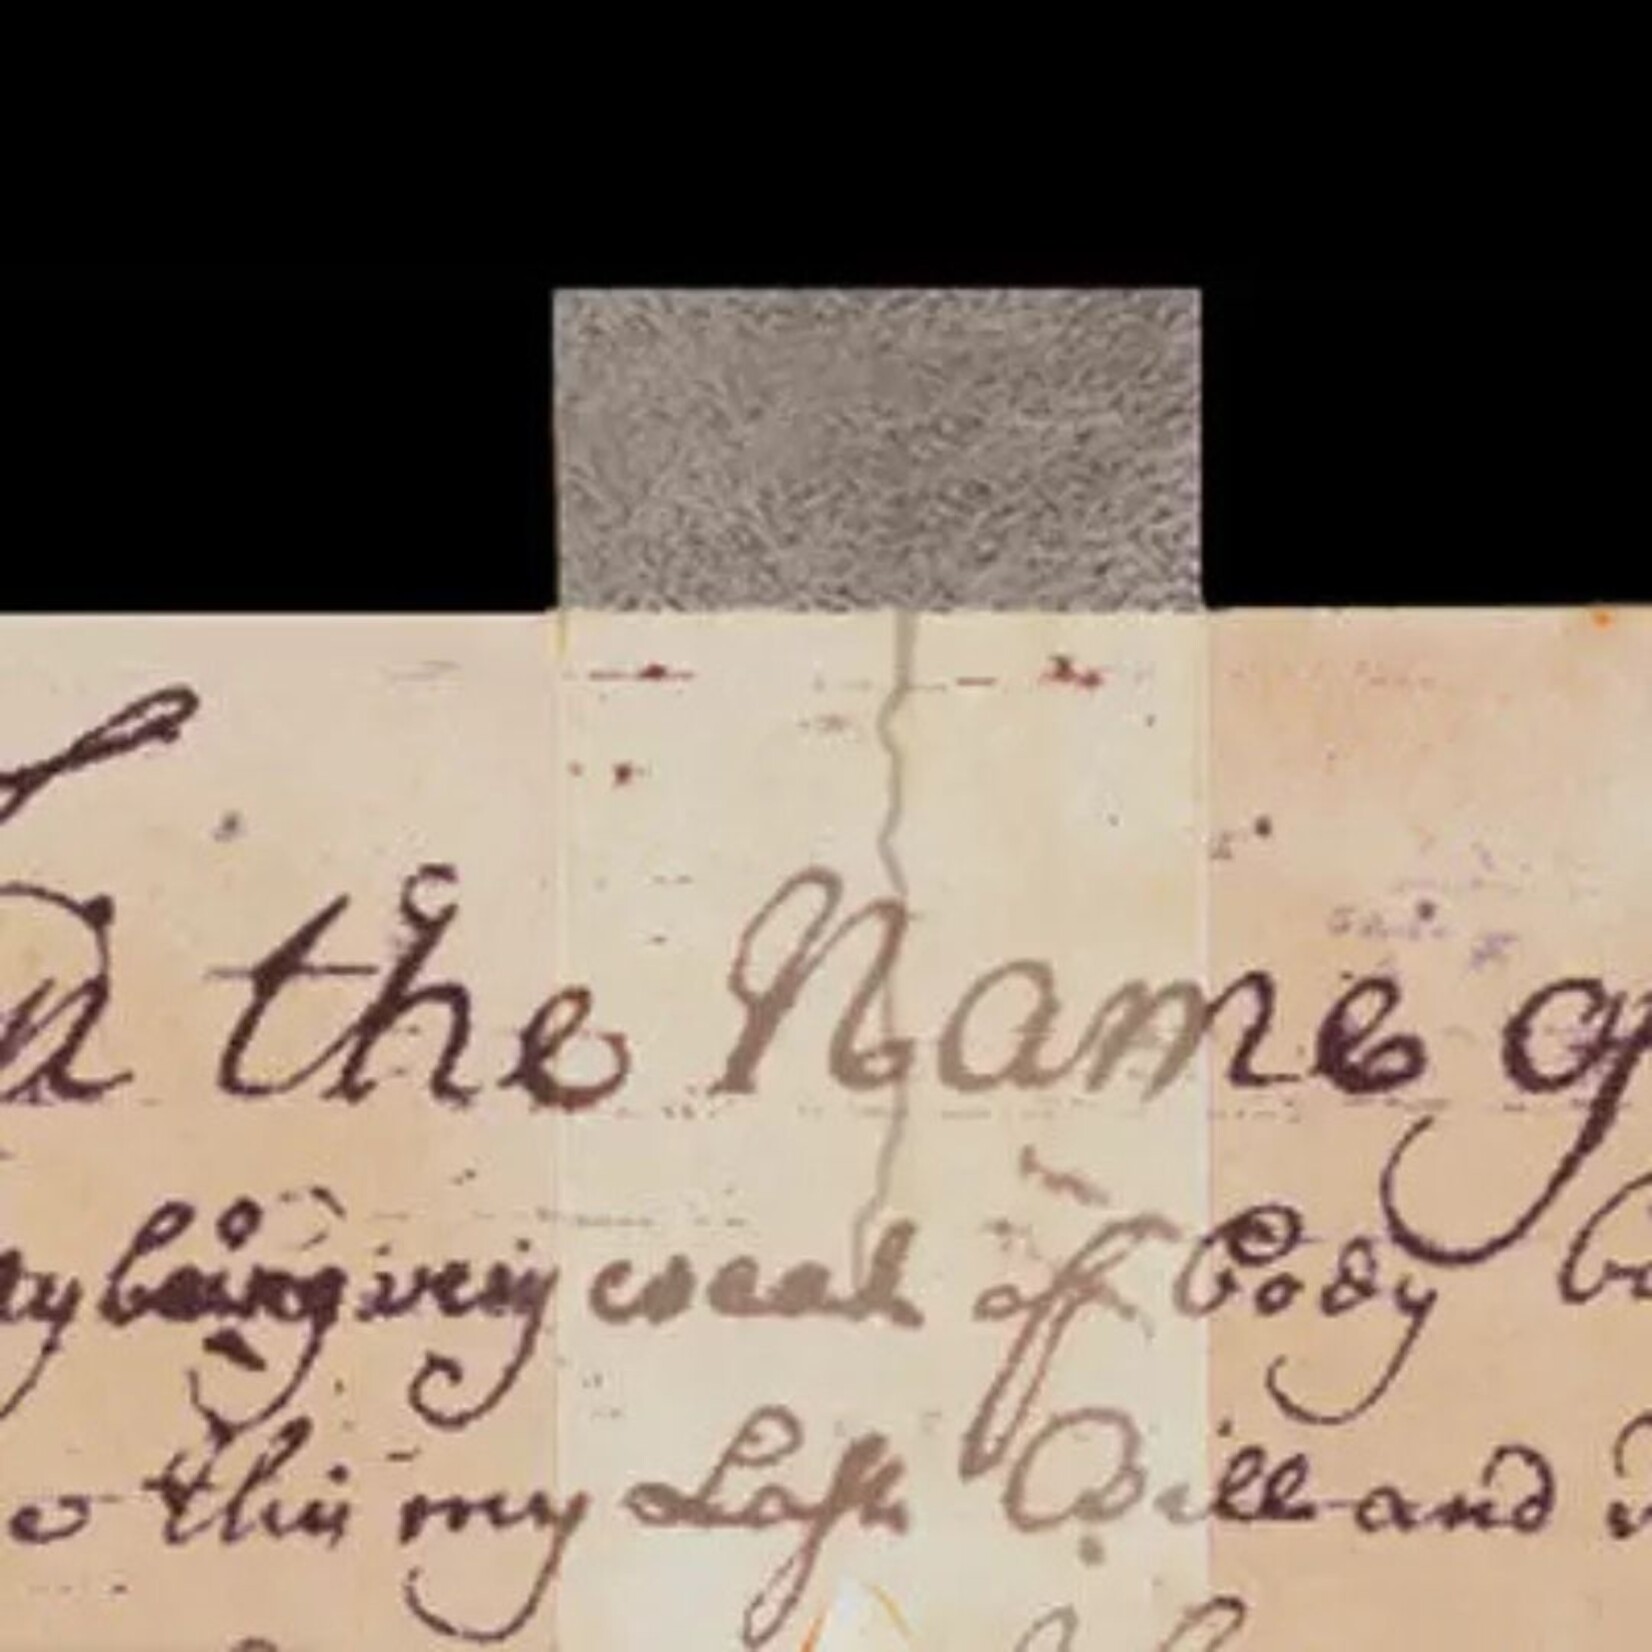 In the Name of
being very weak off Body
to this my Last Will and